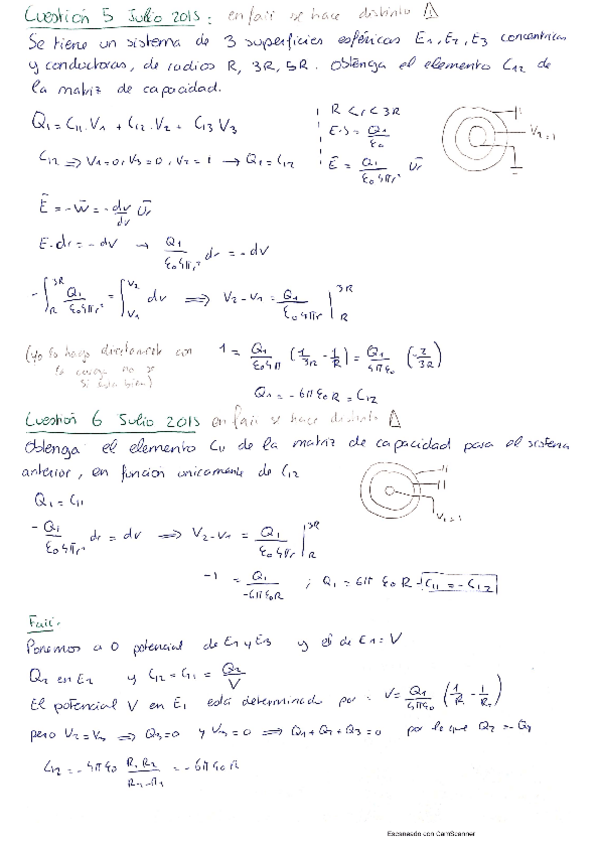 Cuestión 5 Julio 2015: en fait se hace distinto ⚠
Se tiene un sistema de 3 superficies esféricas E1, E2, E3 concentricas
y conductoras, de radios R, 3R, 5R. Obtenga el elemento C12 de
la matriz de capacidad.
Q1 = C11·V1 + C12·V2 + C13 V3
R < r < 3R
E·S = Q1/ε0
V2=1
C12 ⇒ V1=0, V3=0, V2=1 → Q1 = C12
Ē = Q1/(ε0 4πr²) ūr
Ē = -∇̄ = -dv/dr ūr
E·dr = -dV → Q1/(ε0 4πr²) dr = -dV
-∫_R^3R Q1/(ε0 4πr²) = ∫_V1^V2 dv ⇒ V2-V1 = Q1/(ε0 4πr) |_R^3R
(yo lo hago directamente con
la carga no se
si esta bien)
1 = Q1/(ε0 4π) (1/3R - 1/R) = Q1/(4πε0) (-2/3R)
Q1 = -6πε0R = C12
Cuestión 6 Julio 2015 en fait se hace distinto ⚠
Obtenga el elemento C11 de la matriz de capacidad para el sistema
anterior, en función unicamente de C12
Q1 = C11
V1=1
-Q1/(ε0 4πr²) dr = dv ⇒ V2-V1 = Q1/(ε0 4πr) |_R^3R
-1 = Q1/(-6πε0R) ; Q1 = 6π ε0 R → C11 = -C12
Fait:
Ponemos a 0 potencial de E2 y E3 y el de E1 = V
Q2 en E2 y C12 = C21 = Q2/V
El potencial V en E1 está determinado por: V = Q1/(4πε0) (1/R - 1/R2)
pero V2 = V3 ⇒ Q3=0 y V3=0 ⇒ Q1+Q2+Q3=0 por lo que Q2 = -Q1
C12 = -4πε0 R1 R2/(R2-R1) = -6πε0R
Escaneado con CamScanner